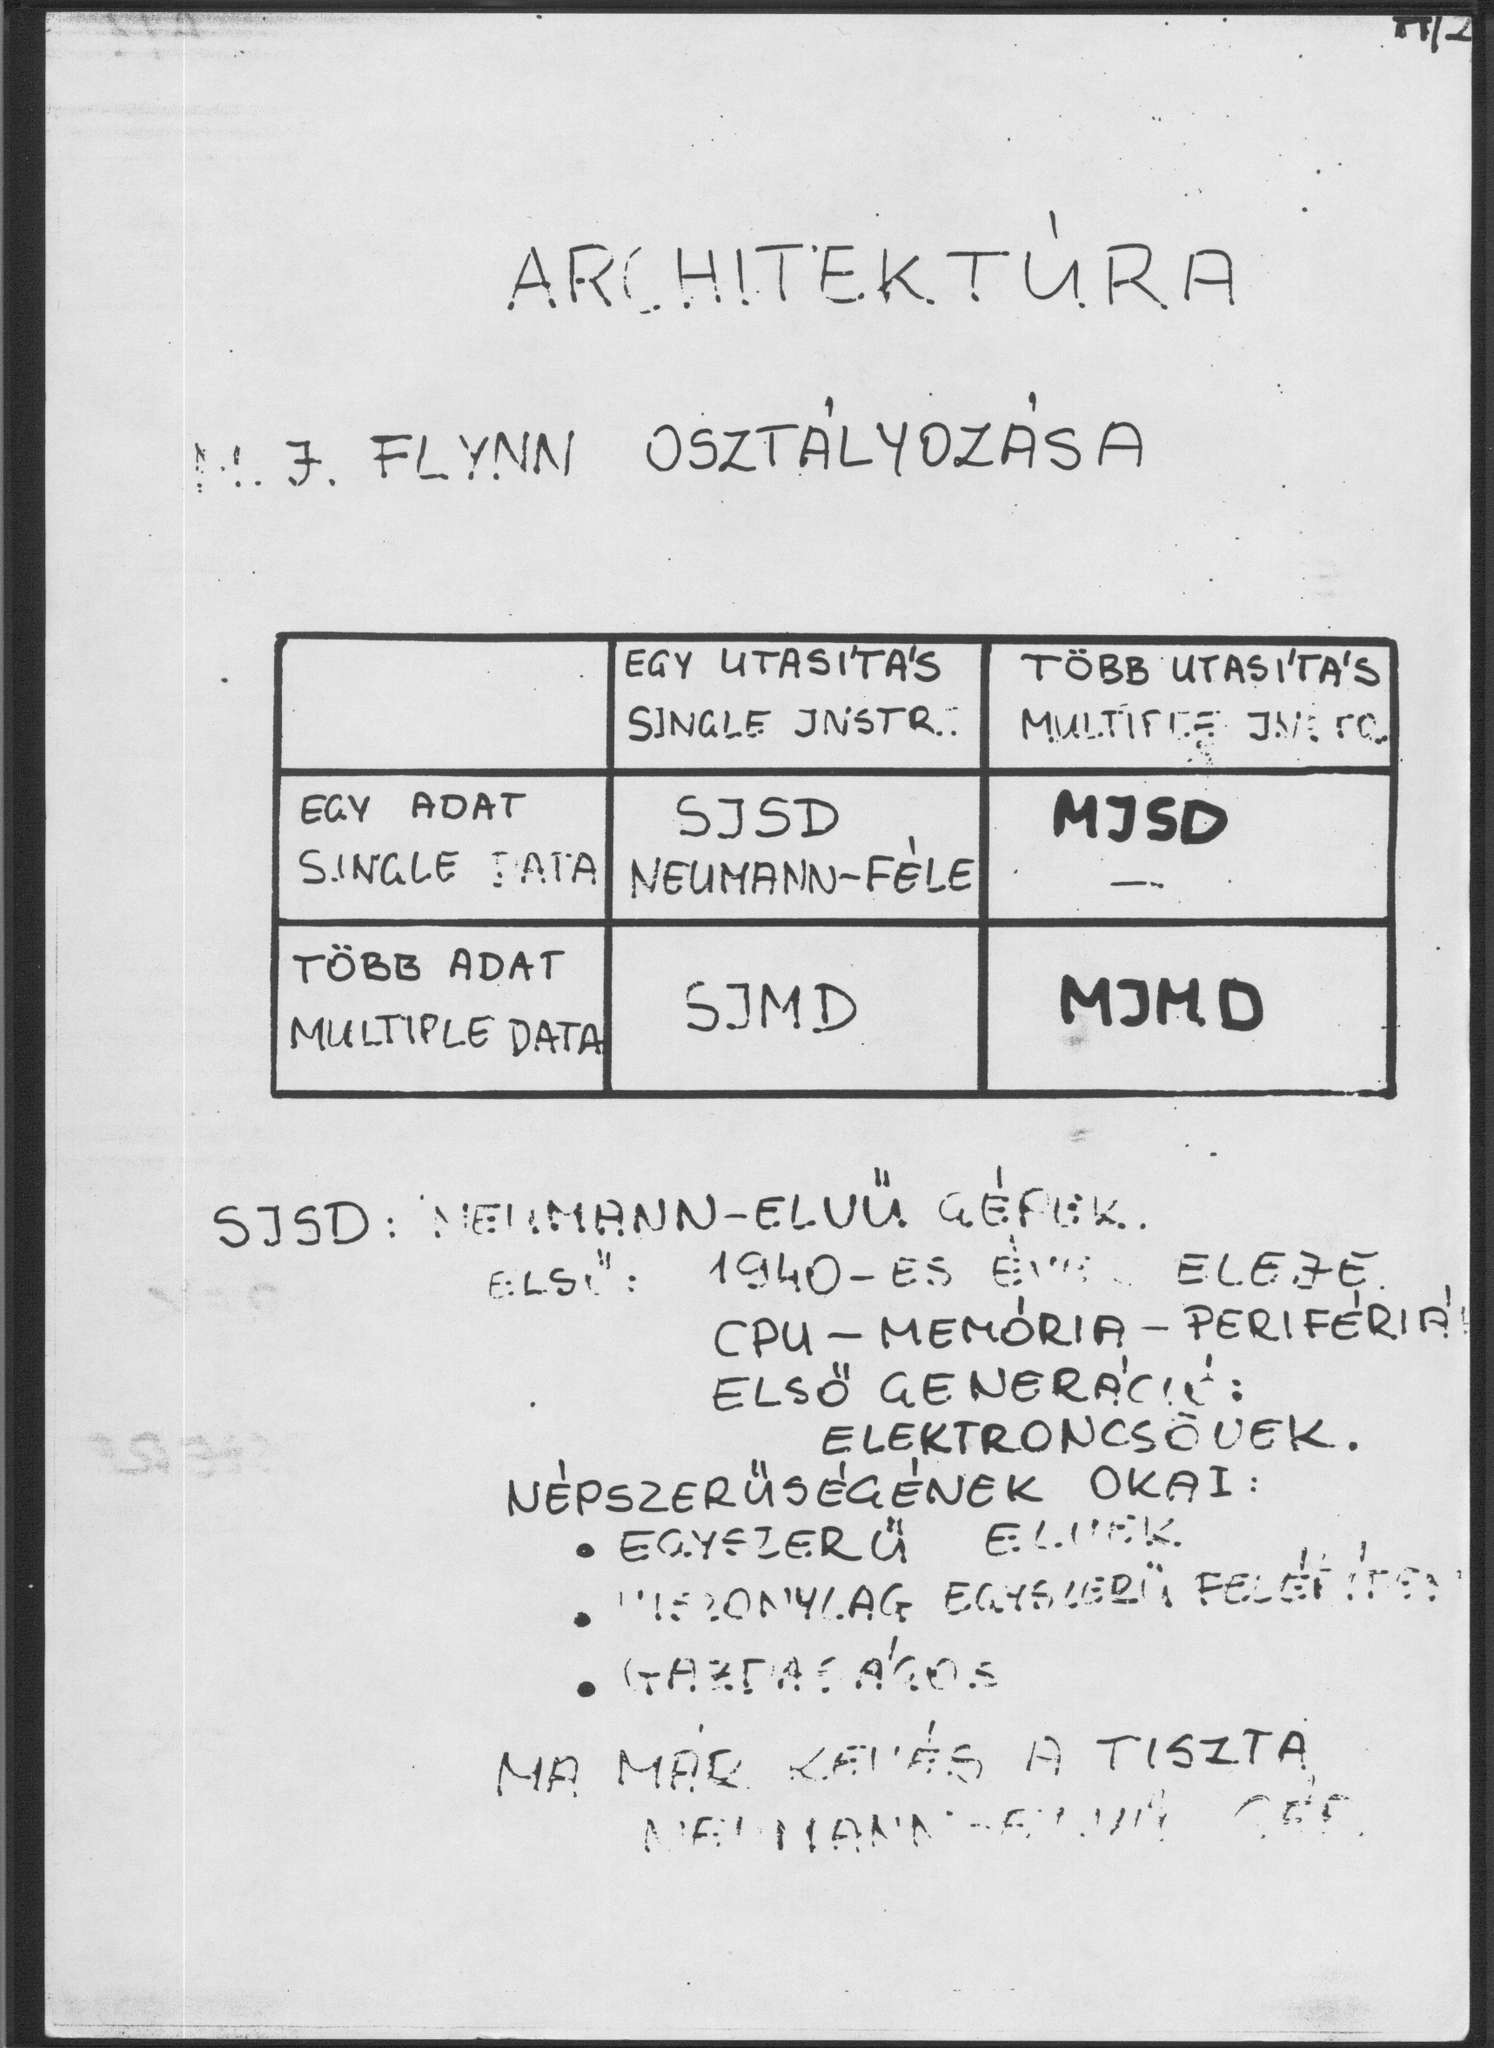 ARCHITEKTÚRA
M. J. FLYNN OSZTÁLYOZÁSA
EGY UTASÍTÁS
SINGLE INSTR.
TÖBB UTASÍTÁS
MULTIPLE INSTR.
EGY ADAT
SINGLE DATA
SISD
NEUMANN-FÉLE
MISD
—
TÖBB ADAT
MULTIPLE DATA
SIMD
MIMD
SISD: NEUMANN-ELVŰ GÉPEK.
ELSŐ: 1940-ES ÉVEK ELEJE.
CPU – MEMÓRIA – PERIFÉRIÁ
ELSŐ GENERÁCIÓ:
ELEKTRONCSÖVEK.
NÉPSZERŰSÉGÉNEK OKAI:
• EGYSZERŰ ELVEK
• VISZONYLAG EGYSZERŰ FELÉPÍTÉS
• GAZDASÁGOS
MA MÁR KEVÉS A TISZTA
NEUMANN-ELVŰ GÉP.